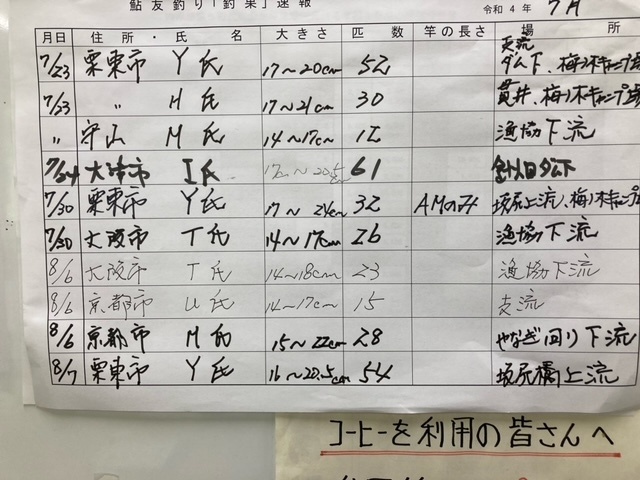 鮎友釣り「釣果」速報 令和4年 7月
月日 住所・氏名 大きさ 匹数 竿の長さ 場所
7/23 栗東市 Y氏 17〜20cm 52 支流 ダム下、梅ノ木キャンプ場
7/23 〃 H氏 17〜21cm 30 貫井、梅ノ木キャンプ場
〃 守山 M氏 14〜17cm 12 漁協下流
7/24 大津市 I氏 17cm〜20.5cm 61 ダム下
7/30 栗東市 Y氏 17〜21cm 32 AMのみ 坂尻上流、梅ノ木キャンプ
7/30 大阪市 T氏 14〜17cm 26 漁協下流
8/6 大阪市 T氏 14〜18cm 23 漁協下流
8/6 京都市 U氏 14〜17cm 15 支流
8/6 京都市 M氏 15〜22cm 28 やなぎ回り下流
8/7 栗東市 Y氏 16〜20.5cm 54 坂尻橋上流
コーヒーを利用の皆さんへ